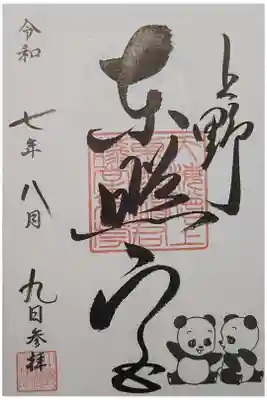 上野
東照宮
令和
七年八月
九日参拝